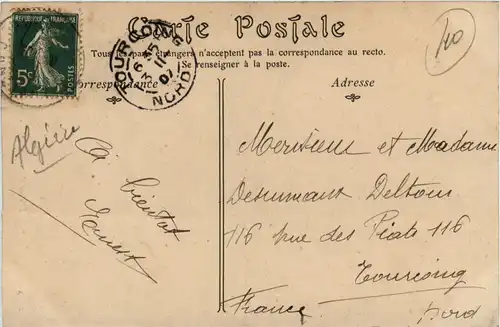 Carte Postale
Tous les pays étrangers n'acceptent pas la correspondance au recto.
Se renseigner à la poste.
Correspondance
Adresse
REPUBLIQUE FRANÇAISE
5c
POSTES
TOURCOING
NORD
Algérie
à bientôt
Monsieur et Madame
Desrumaux Deltour
116 rue des Piats 116
Tourcoing
France
Nord